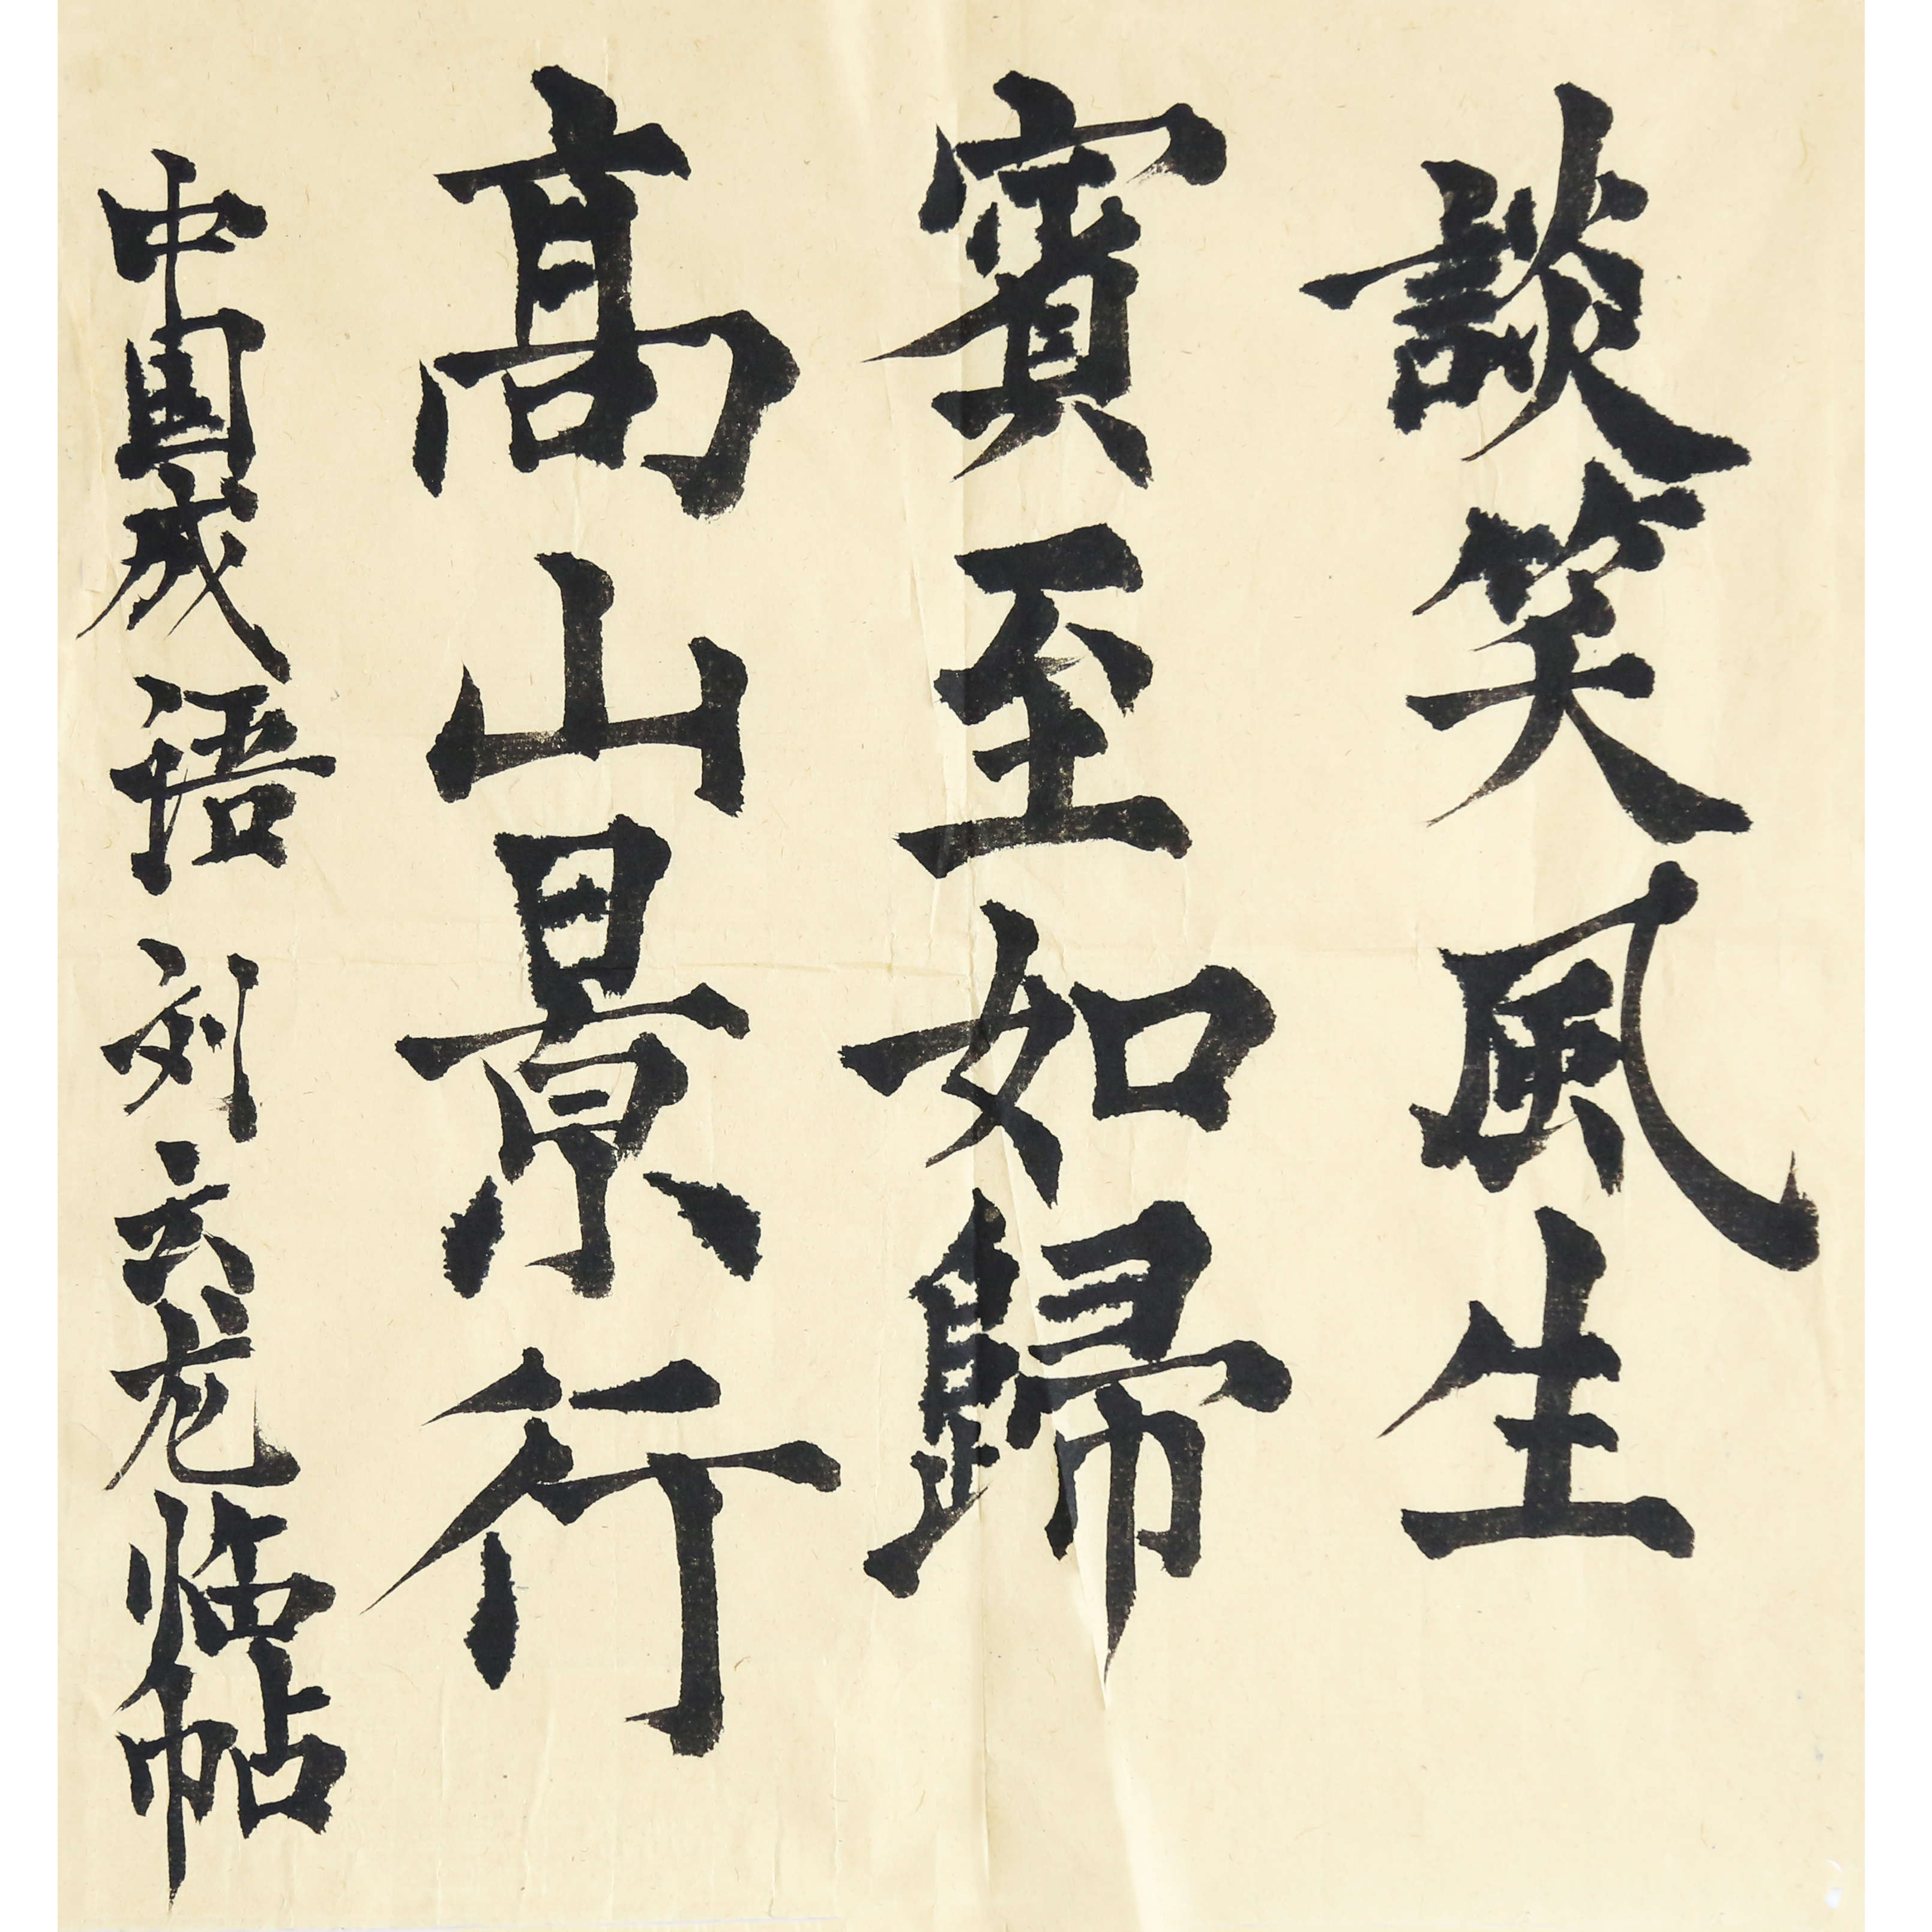 談笑風生
賓至如歸
髙山景行
中国成语 刘六龙临帖